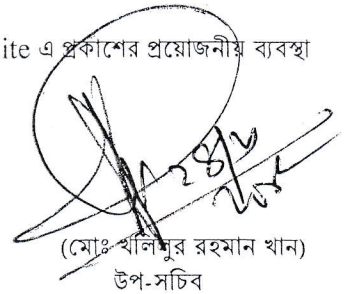 ite এ প্রকাশের প্রয়োজনীয় ব্যবস্থা
(মোঃ খলিলুর রহমান খান)
উপ-সচিব